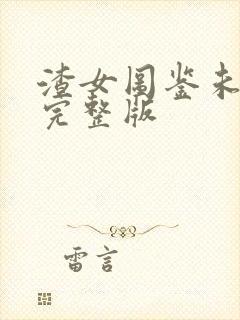 渣女图鉴未
完整版
雷言